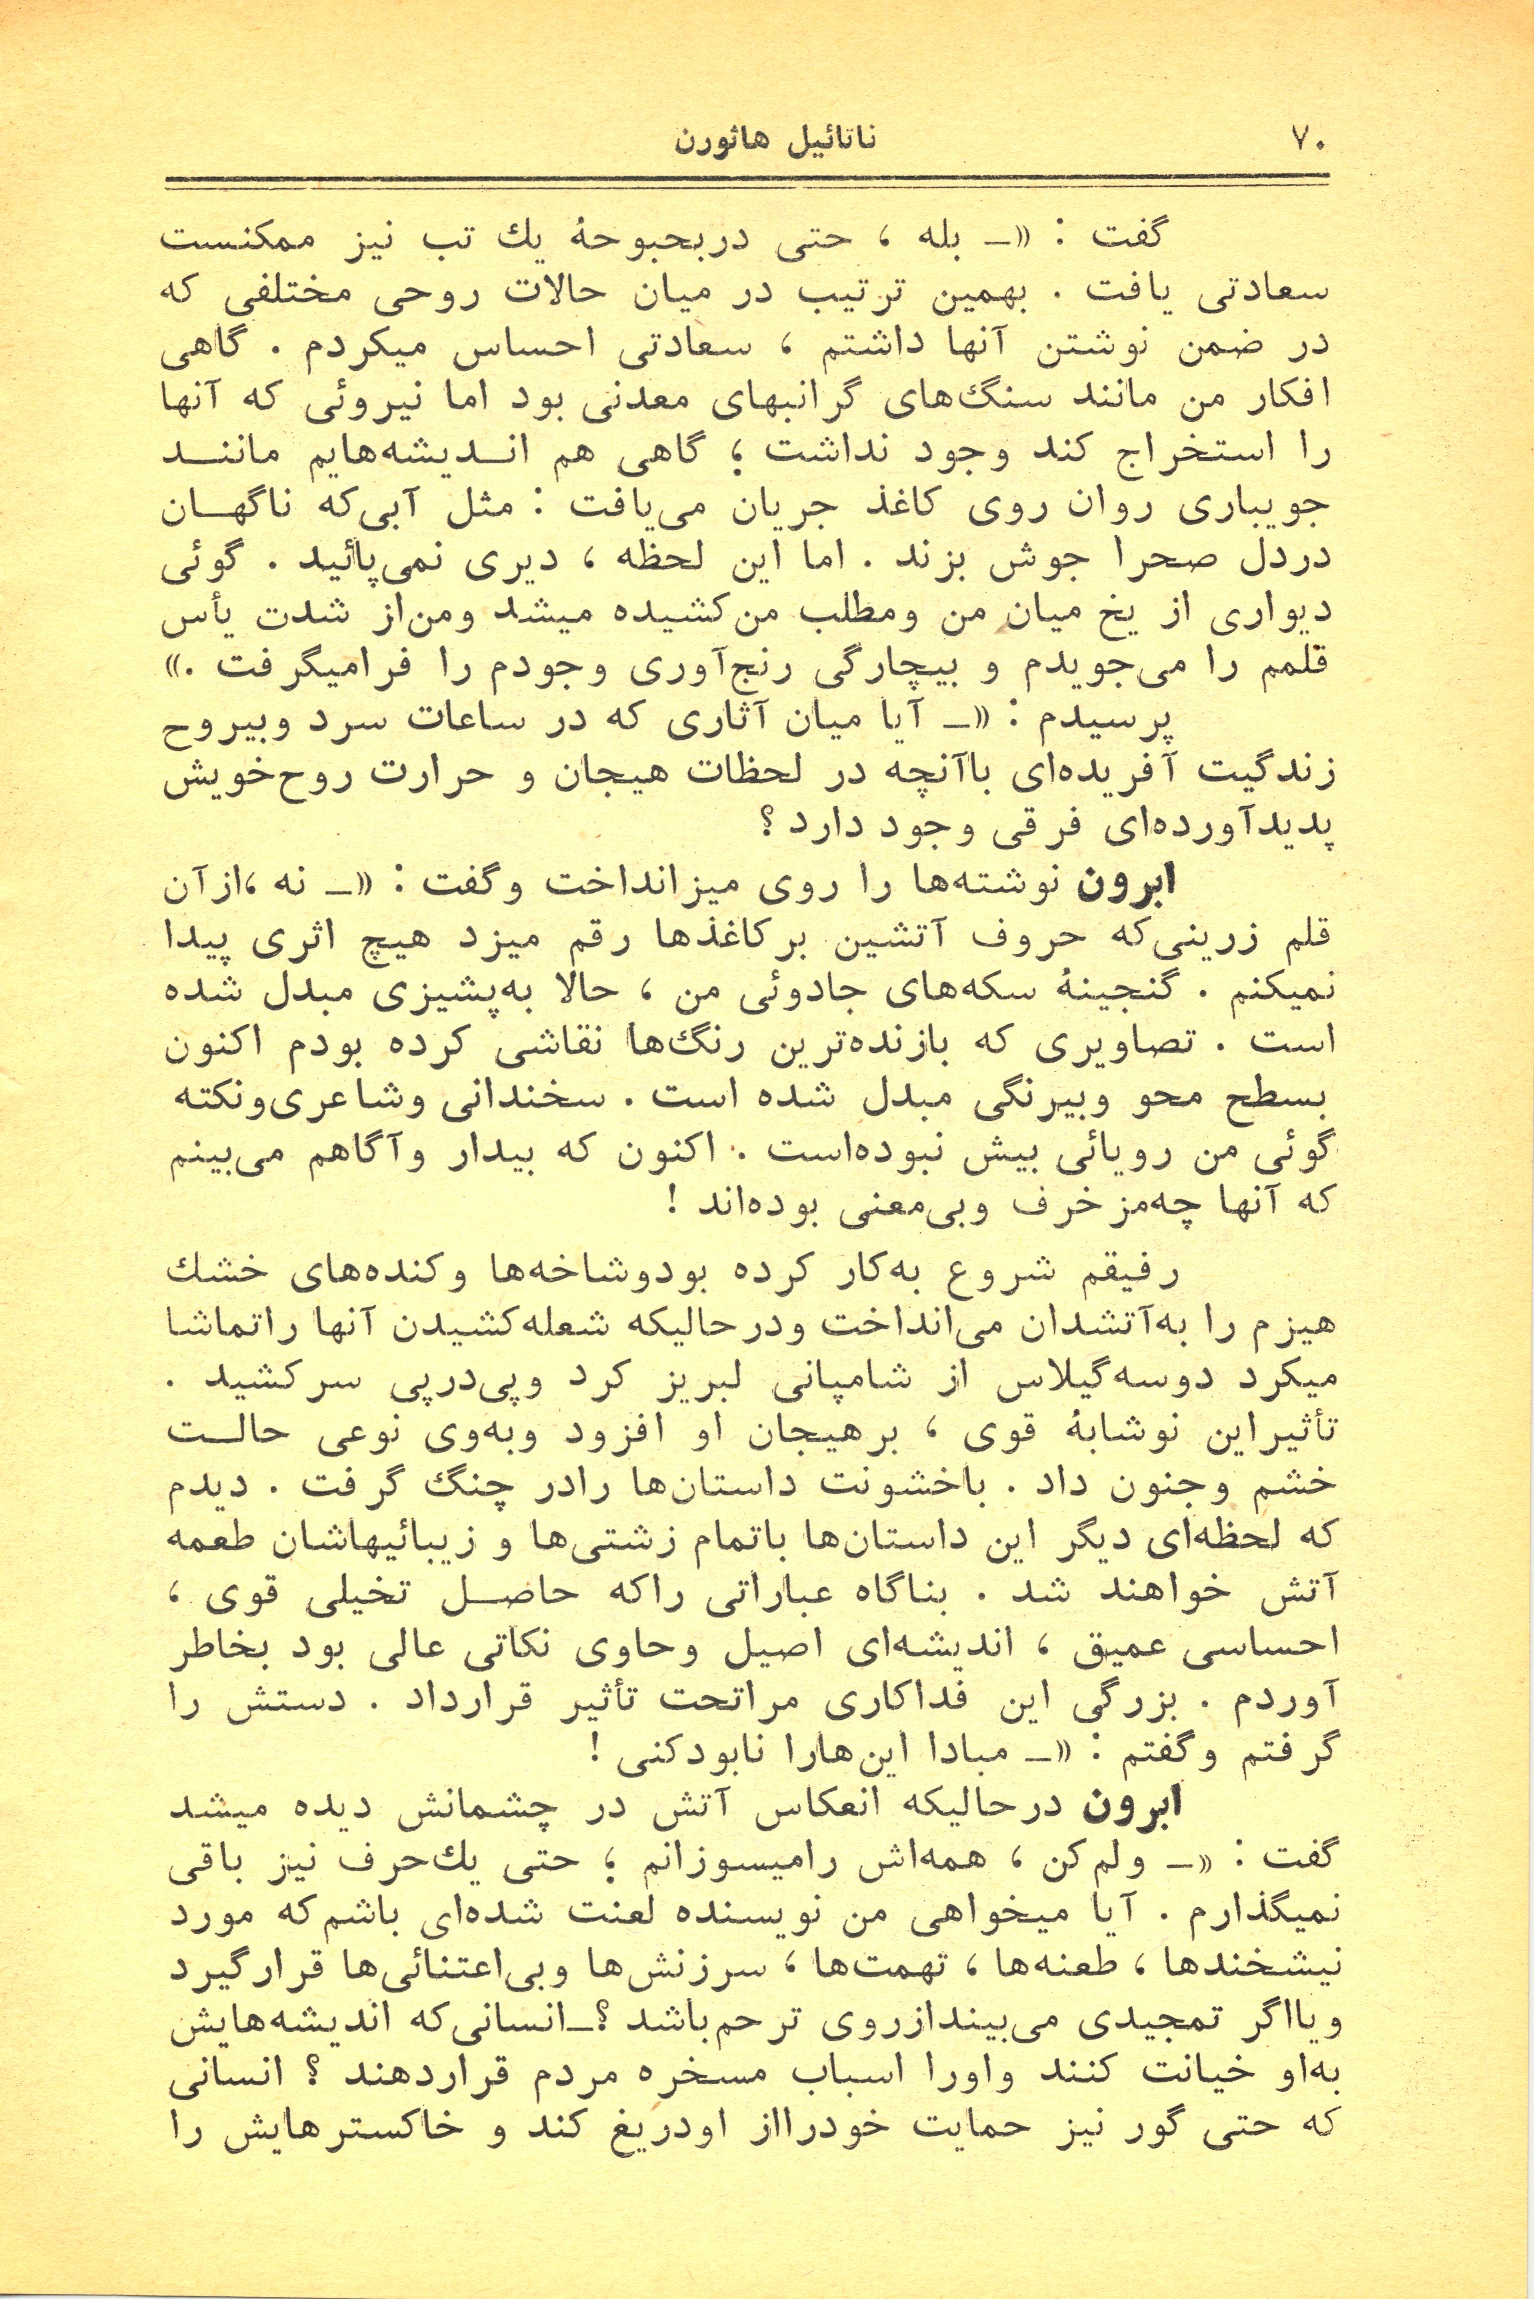 ۷۰
ناتائیل هاثورن
گفت : «ــ بله ، حتی دربحبوحهٔ یك تب نیز ممکنست
سعادتی یافت . بهمین ترتیب در میان حالات روحی مختلفی که
در ضمن نوشتن آنها داشتم ، سعادتی احساس میکردم . گاهی
افکار من مانند سنگ‌های گرانبهای معدنی بود اما نیروئی که آنها
را استخراج کند وجود نداشت ؛ گاهی هم اندیشه‌هایم مانند
جویباری روان روی کاغذ جریان می‌یافت : مثل آبی‌که ناگهان
دردل صحرا جوش بزند . اما این لحظه ، دیری نمی‌پائید . گوئی
دیواری از یخ میان من ومطلب من‌کشیده میشد ومن‌از شدت یأس
قلمم را می‌جویدم و بیچارگی رنج‌آوری وجودم را فرامیگرفت .»
پرسیدم : «ــ آیا میان آثاری که در ساعات سرد وبیروح
زندگیت آفریده‌ای باآنچه در لحظات هیجان و حرارت روح‌خویش
پدیدآورده‌ای فرقی وجود دارد ؟
ابرون نوشته‌ها را روی میزانداخت وگفت : «ــ نه ،ازآن
قلم زرینی‌که حروف آتشین برکاغذها رقم میزد هیچ اثری پیدا
نمیکنم . گنجینهٔ سکه‌های جادوئی من ، حالا به‌پشیزی مبدل شده
است . تصاویری که بازنده‌ترین رنگ‌ها نقاشی کرده بودم اکنون
بسطح محو وبیرنگی مبدل شده است . سخندانی وشاعری‌ونکته
گوئی من رویائی بیش نبوده‌است . اکنون که بیدار وآگاهم می‌بینم
که آنها چه‌مزخرف وبی‌معنی بوده‌اند !
رفیقم شروع به‌کار کرده بودوشاخه‌ها وکنده‌های خشك
هیزم را به‌آتشدان می‌انداخت ودرحالیکه شعله‌کشیدن آنها راتماشا
میکرد دوسه‌گیلاس از شامپانی لبریز کرد وپی‌درپی سرکشید .
تأثیراین نوشابهٔ قوی ، برهیجان او افزود وبه‌وی نوعی حالت
خشم وجنون داد . باخشونت داستان‌ها رادر چنگ گرفت . دیدم
که لحظه‌ای دیگر این داستان‌ها باتمام زشتی‌ها و زیبائیهاشان طعمه
آتش خواهند شد . بناگاه عباراتی راکه حاصل تخیلی قوی ،
احساسی عمیق ، اندیشه‌ای اصیل وحاوی نکاتی عالی بود بخاطر
آوردم . بزرگی این فداکاری مراتحت تأثیر قرارداد . دستش را
گرفتم وگفتم : «ــ مبادا این‌هارا نابودکنی !
ابرون درحالیکه انعکاس آتش در چشمانش دیده میشد
گفت : «ــ ولم‌کن ، همه‌اش رامیسوزانم ؛ حتی یك‌حرف نیز باقی
نمیگذارم . آیا میخواهی من نویسنده لعنت شده‌ای باشم‌که مورد
نیشخندها ، طعنه‌ها ، تهمت‌ها ، سرزنش‌ها وبی‌اعتنائی‌ها قرارگیرد
ویااگر تمجیدی می‌بیندازروی ترحم‌باشد ؟ــانسانی‌که اندیشه‌هایش
به‌او خیانت کنند واورا اسباب مسخره مردم قراردهند ؟ انسانی
که حتی گور نیز حمایت خودرااز اودریغ کند و خاکسترهایش را